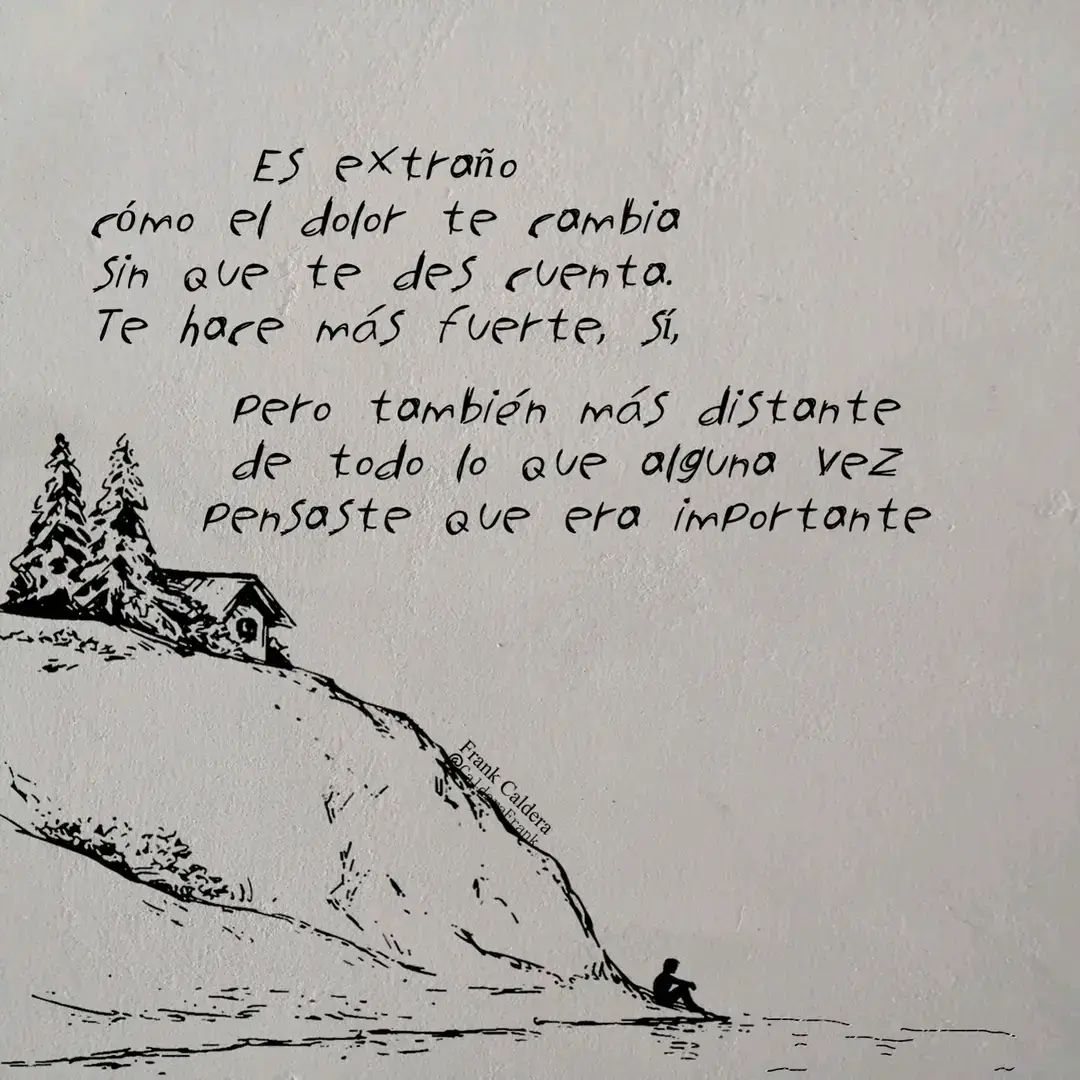 Es extraño
cómo el dolor te cambia
sin que te des cuenta.
Te hace más fuerte, sí,
pero también más distante
de todo lo que alguna vez
pensaste que era importante
Frank Caldera
@CalderaFrank